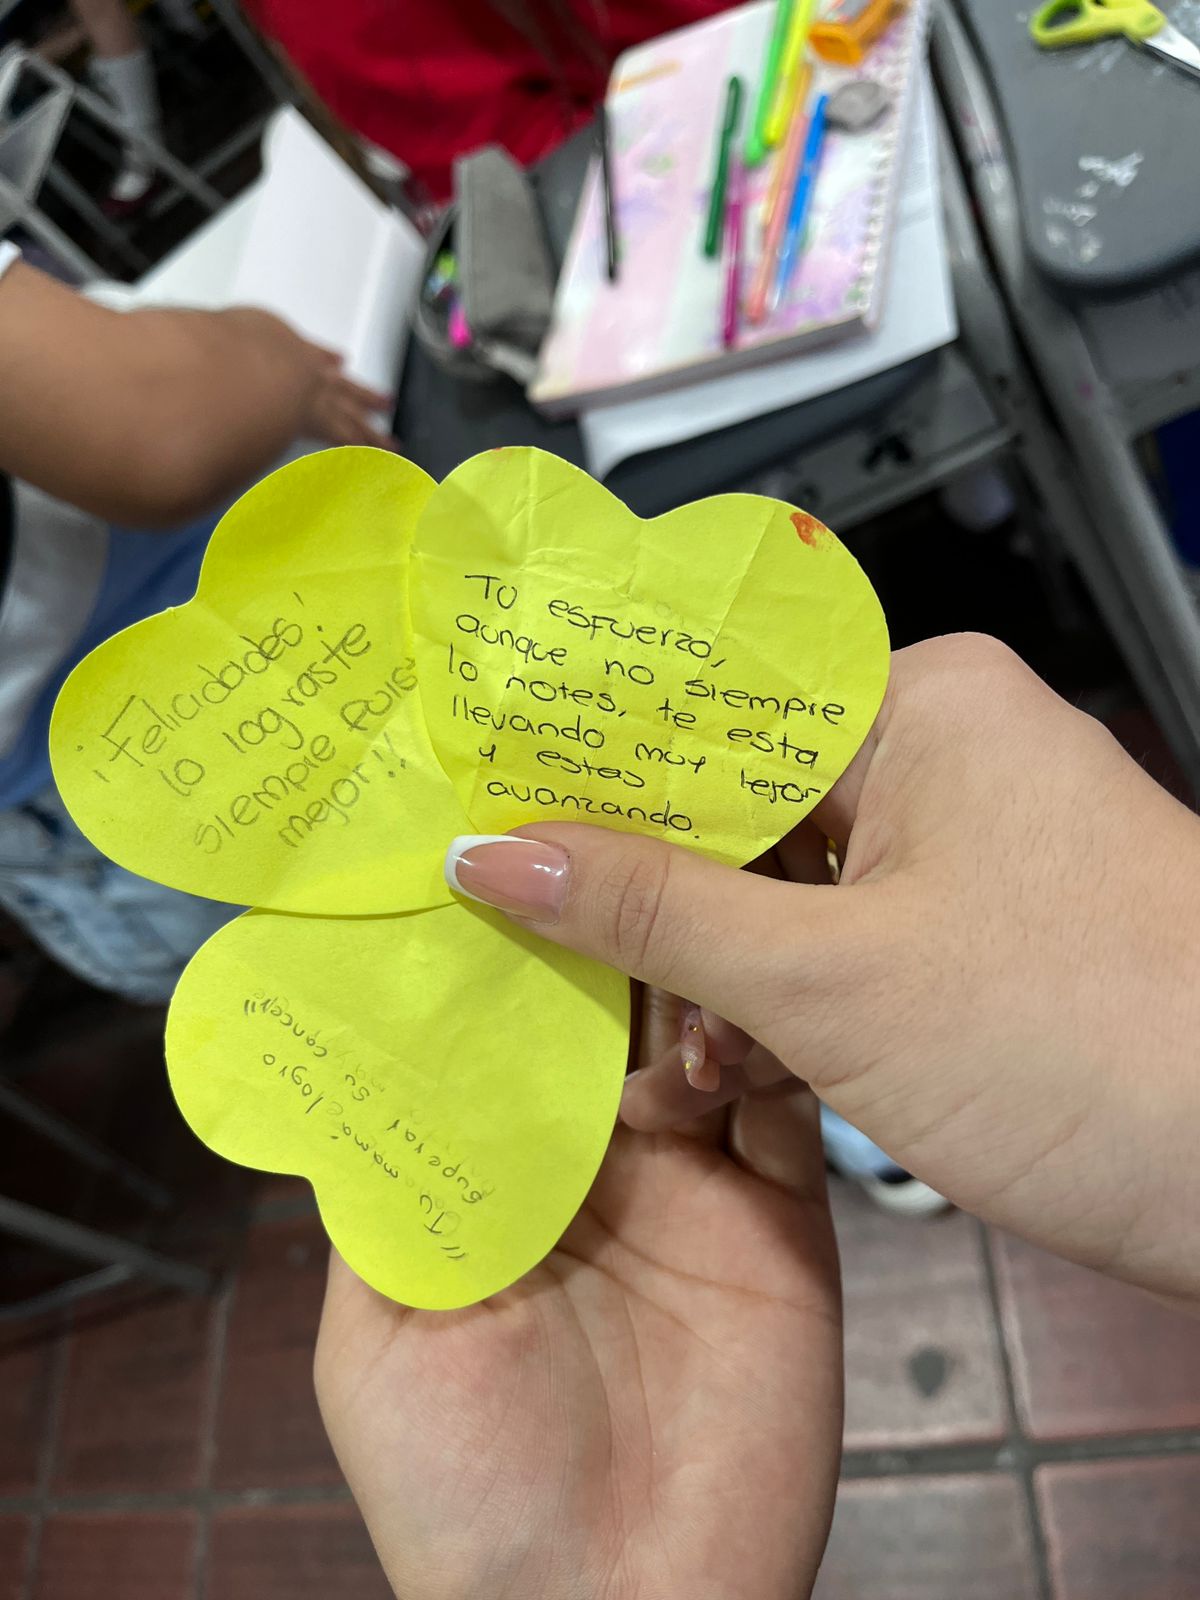 ¡Felicidades!
lo lograste
siempre fuis
mejor!!
TU esfuerzo,
aunque no siempre
lo notes, te esta
llevando muy lejor
y estas
avanzando.
"Tu mamá logro
superar su
cancer"